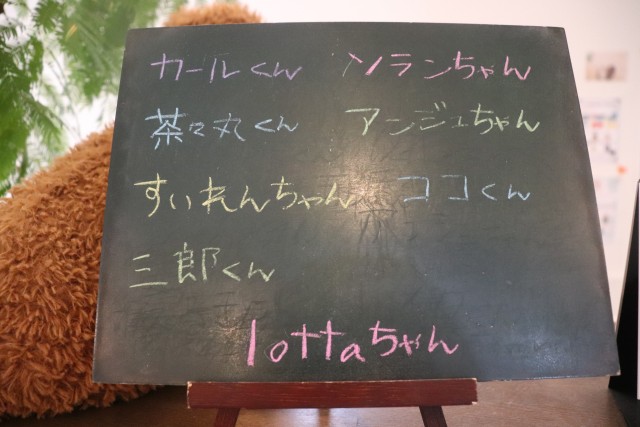 カールくん ソランちゃん
茶々丸くん アンジュちゃん
すいれんちゃん ココくん
三郎くん
lottaちゃん